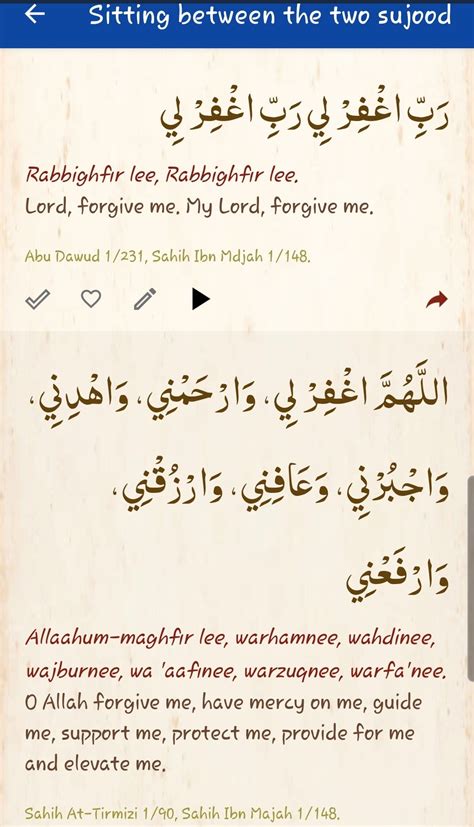 Sitting between the two sujood
رَبِّ اغْفِرْ لِي رَبِّ اغْفِرْ لِي
Rabbighfir lee, Rabbighfir lee.
Lord, forgive me. My Lord, forgive me.
Abu Dawud 1/231, Sahih Ibn Mdjah 1/148.
اللَّهُمَّ اغْفِرْ لِي، وَارْحَمْنِي، وَاهْدِنِي،
وَاجْبُرْنِي، وَعَافِنِي، وَارْزُقْنِي،
وَارْفَعْنِي
Allaahum-maghfir lee, warhamnee, wahdinee,
wajburnee, wa 'aafinee, warzuqnee, warfa'nee.
O Allah forgive me, have mercy on me, guide
me, support me, protect me, provide for me
and elevate me.
Sahih At-Tirmizi 1/90, Sahih Ibn Majah 1/148.